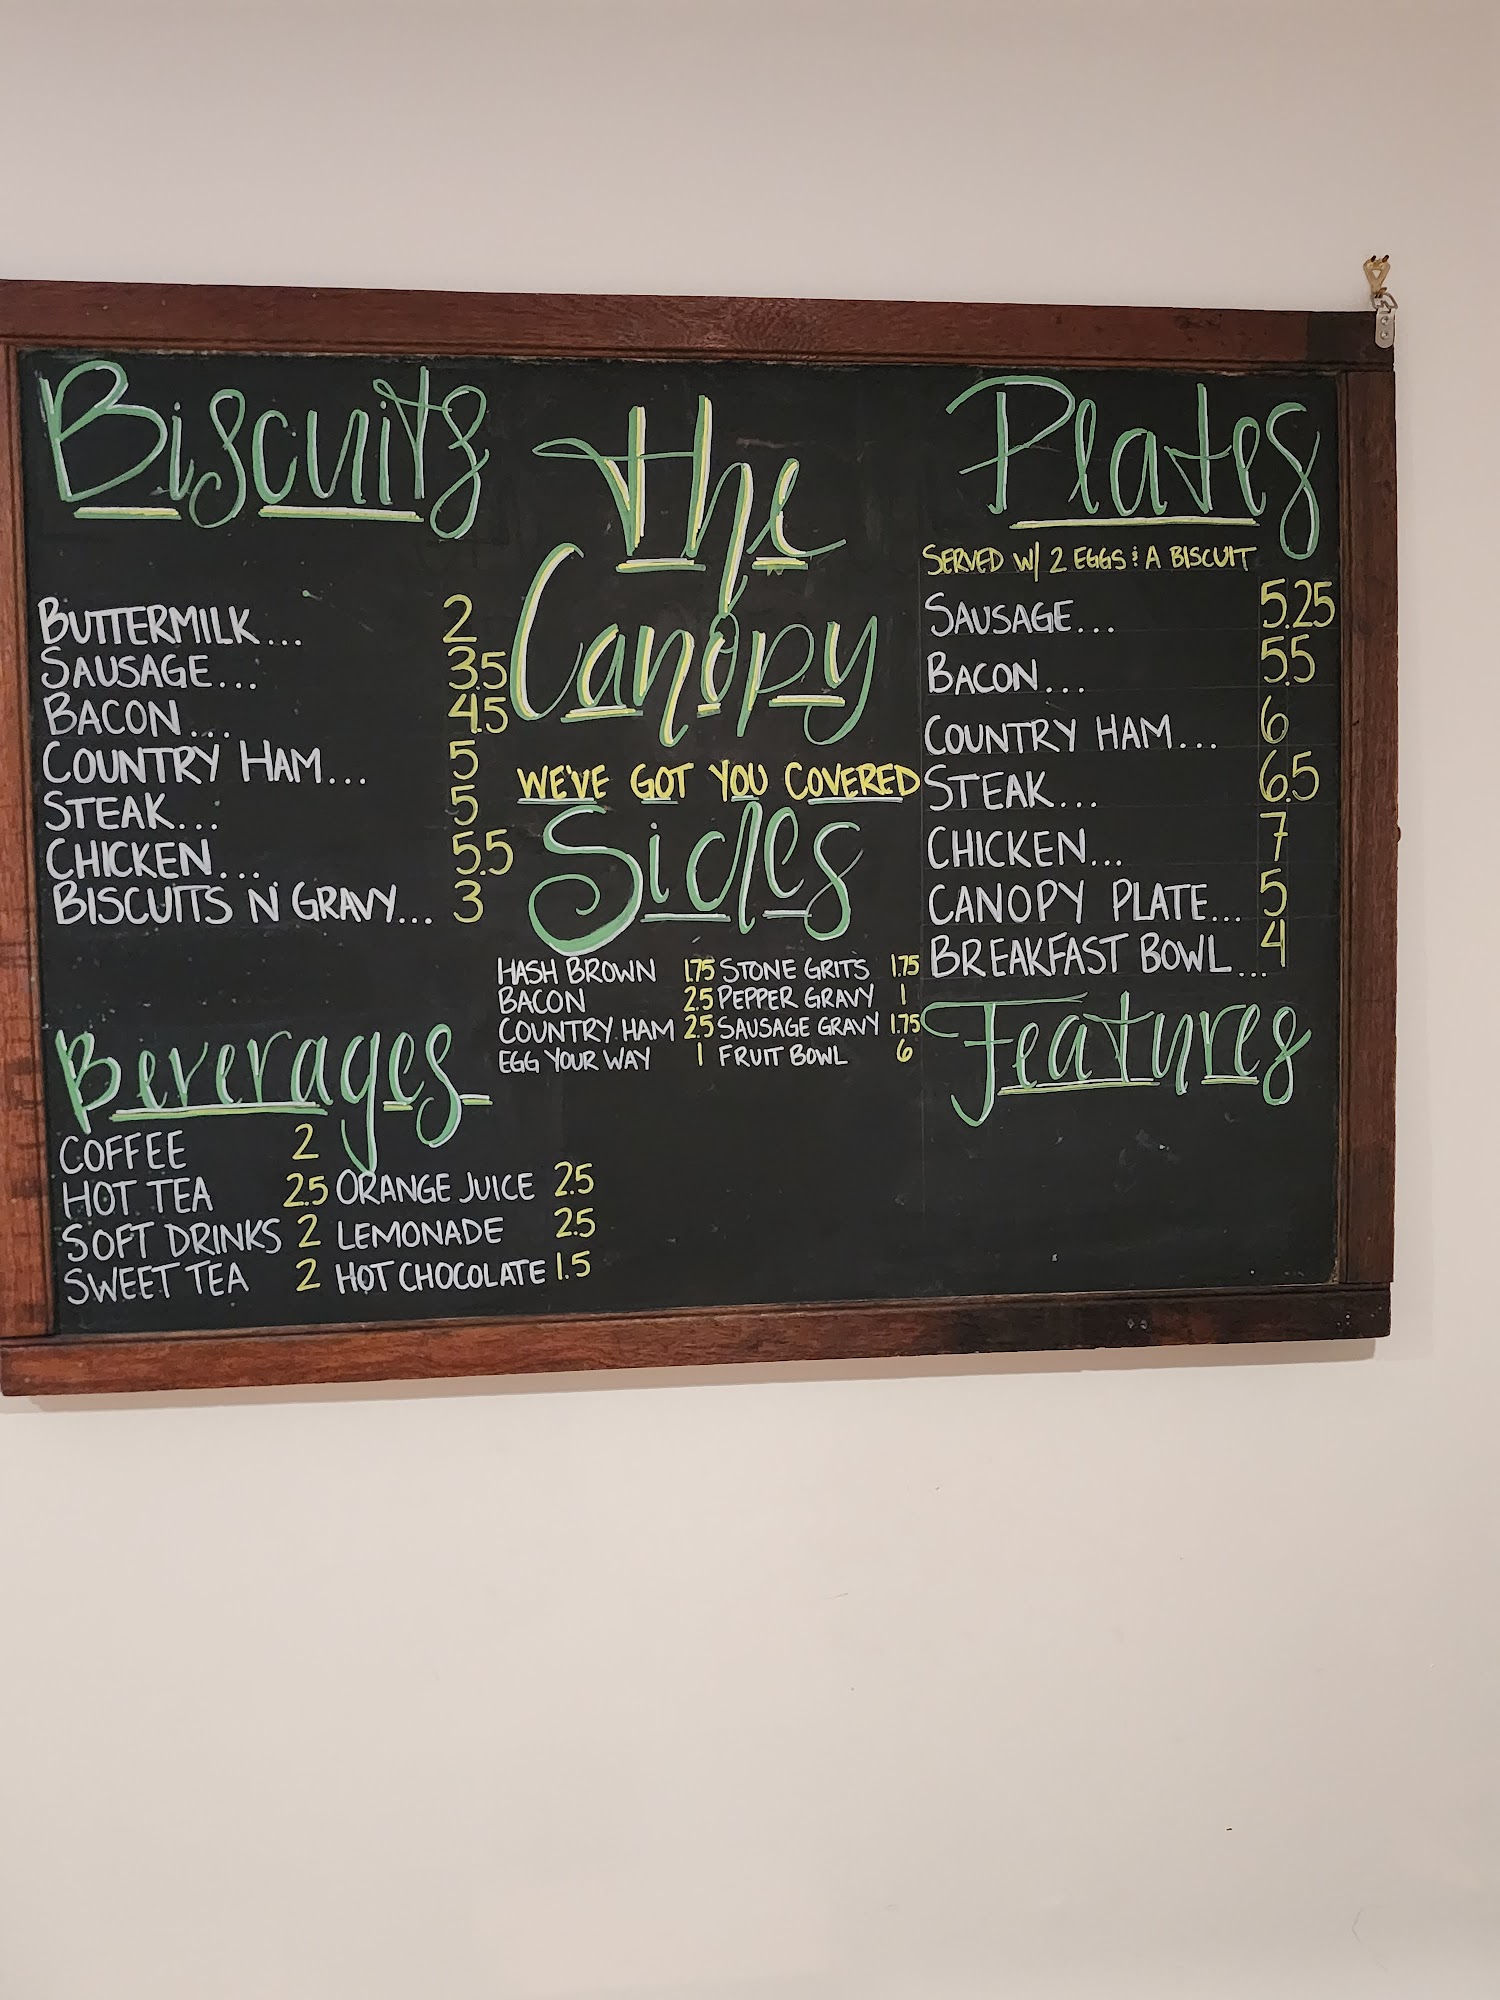 Biscuits
BUTTERMILK... 2
SAUSAGE... 3.5
BACON... 4.5
COUNTRY HAM... 5
STEAK... 5
CHICKEN... 5.5
BISCUITS N GRAVY... 3
Beverages
COFFEE 2
HOT TEA 2.5 ORANGE JUICE 2.5
SOFT DRINKS 2 LEMONADE 2.5
SWEET TEA 2 HOT CHOCOLATE 1.5
The
Canopy
WE'VE GOT YOU COVERED
Sides
HASH BROWN 1.75 STONE GRITS 1.75
BACON 2.5 PEPPER GRAVY 1
COUNTRY HAM 2.5 SAUSAGE GRAVY 1.75
EGG YOUR WAY 1 FRUIT BOWL 6
Plates
SERVED W/ 2 EGGS & A BISCUIT
SAUSAGE... 5.25
BACON... 5.5
COUNTRY HAM... 6
STEAK... 6.5
CHICKEN... 7
CANOPY PLATE... 5
BREAKFAST BOWL... 4
Features